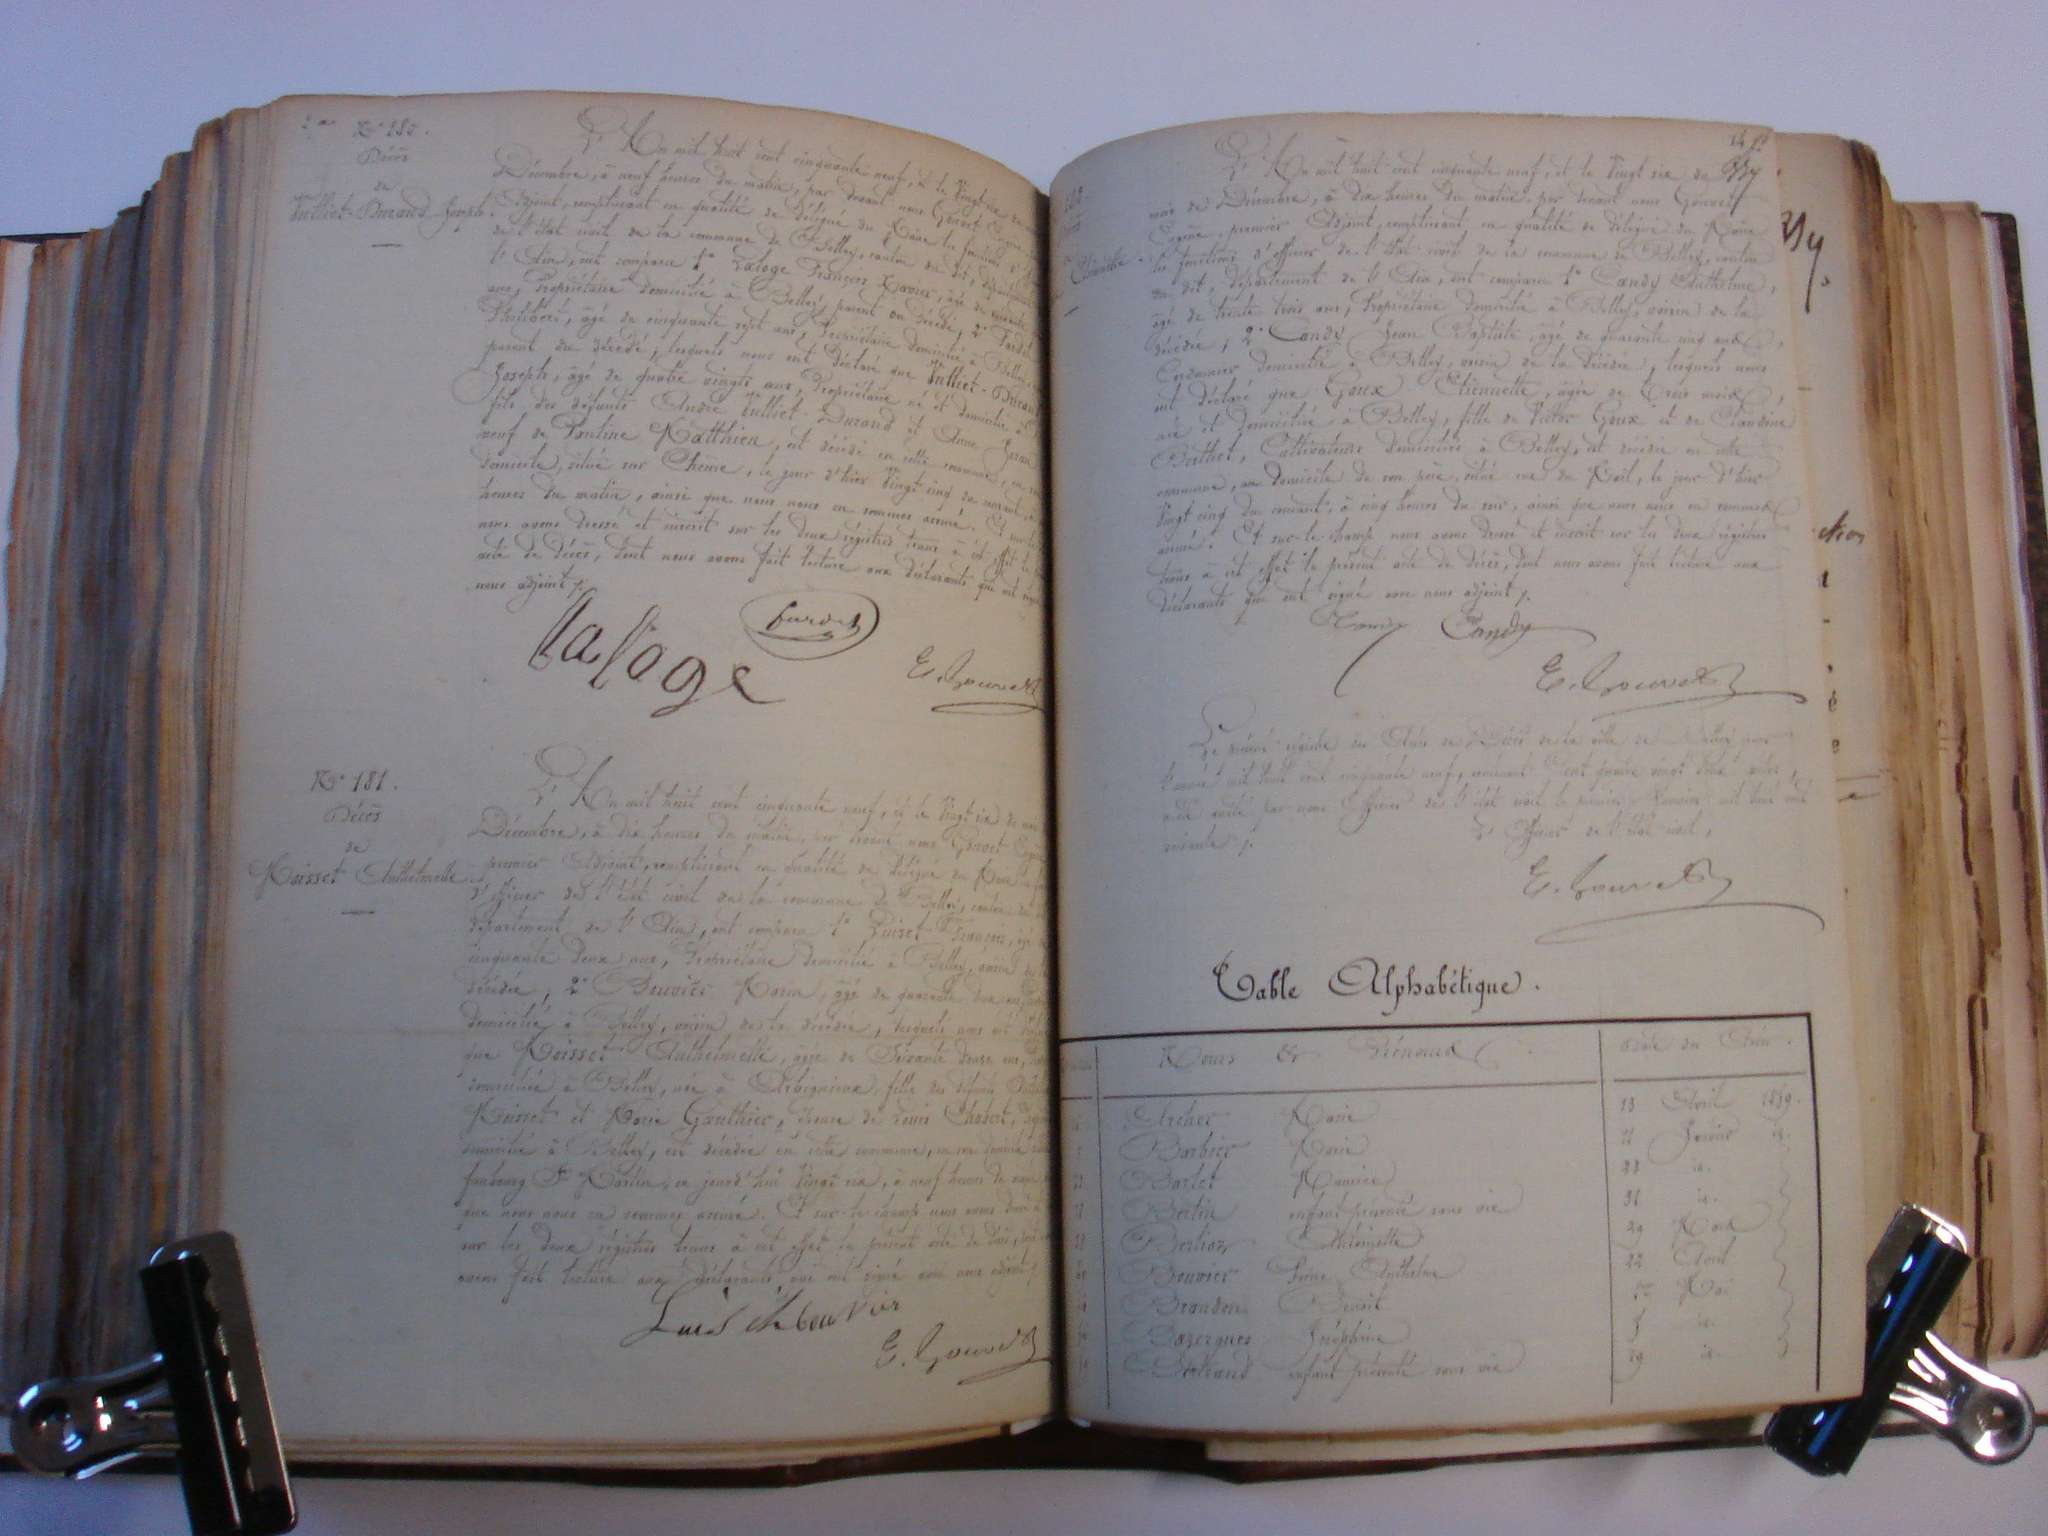 N° 180.
Décès
de
Julliet-Durand Joseph.
L'An mil huit cent cinquante neuf, et le vingt six
Décembre, à neuf heures du matin, par devant nous Gouvet
Adjoint, remplissant en qualité de délégué du Maire les fonctions
de l'état civil de la commune de Belley, canton du dit, département
l'Ain, ont comparu 1° Laloge François Xavier, âgé de
ans, Propriétaire domicilié à Belley, parent du décédé, 2°
Philibert, âgé de cinquante sept ans, Propriétaire domicilié à Belley
parent du décédé, lesquels nous ont déclaré que Julliet-Durand
Joseph, âgé de quatre vingts ans, Propriétaire né et domicilié à
fils des défunts André Julliet-Durand et Anne
veuf de Pauline Matthieu, est décédé en cette commune, en son
domicile, situé sur Chême, le jour d'hier vingt cinq du courant,
heures du matin, ainsi que nous nous en sommes assuré. Et sur le
nous avons dressé et inscrit sur les deux régistres tenus à cet effet le
acte de décès, dont nous avons fait lecture aux déclarants qui ont signé
nous adjoint ./.
Laloge
E. Gouvet
N° 181.
Décès
de
Moisset Anthelmette
L'An mil huit cent cinquante neuf, et le vingt six du mois
Décembre, à dix heures du matin, par devant nous Gouvet Eugène
premier Adjoint, remplissant en qualité de délégué du Maire
d'officier de l'état civil de la commune de Belley, canton du
département de l'Ain, ont comparu 1° Luiset François, âgé
cinquante deux ans, Propriétaire domicilié à Belley, voisin de la
décédée, 2° Bouvier Marin, âgé de quarante
domicilié à Belley, voisin de la décédée, lesquels nous ont
que Moisset Anthelmette, âgée de Soixante douze ans,
domiciliée à Belley, née à Arbignieux, fille des défunts
Moisset et Marie Gauthier, veuve de Louis Chabert,
domicilié à Belley, est décédée en cette commune, en son domicile
faubourg St Martin, ce jourd'hui vingt six, à neuf heures du matin
que nous nous en sommes assuré. Et sur-le-champ nous avons
sur les deux régistres tenus à cet effet le présent acte de décès,
avons fait lecture aux déclarants qui ont signé avec nous adjoint ./.
bouvier
E. Gouvet
L'An mil huit cent cinquante neuf, et le vingt six du
mois de Décembre, à dix heures du matin, par devant nous Gouvet
Eugène, premier Adjoint, remplissant en qualité de délégué du Maire
les fonctions d'officier de l'état civil de la commune de Belley, canton
du dit, département de l'Ain, ont comparu 1° Candy Anthelme,
âgé de trente trois ans, Propriétaire domicilié à Belley, voisin de la
décédée, 2° Candy Jean Baptiste, âgé de quarante cinq ans,
Cordonnier domicilié à Belley, voisin de la décédée, lesquels nous
ont déclaré que Goux Etiennette, âgée de Trois mois,
née et domiciliée à Belley, fille de Victor Goux et de Claudine
Berthet, Cultivateurs domiciliés à Belley, est décédée en cette
commune, au domicile de son père, situé rue du Mail, le jour d'hier
vingt cinq du courant, à cinq heures du soir, ainsi que nous nous en sommes
assuré. Et sur-le-champ nous avons dressé et inscrit sur les deux régistres
tenus à cet effet le présent acte de décès, dont nous avons fait lecture aux
déclarants qui ont signé avec nous adjoint ./.
Candy Candy
E. Gouvet
Le présent régistre des Actes de Décès de la ville de Belley pour
l'année mil huit cent cinquante neuf, contenant Cent quatre vingt deux actes,
a été arrêté par nous Officier de l'état civil le premier Janvier mil huit cent
soixante ./.
L'Officier de l'état civil,
E. Gouvet
Table Alphabétique.
Noms & Prénoms
Date des Actes.
Archer Marie 13 Avril 1859.
Barbier Marie 11 Janvier id.
Barlet 23 id.
Bertin enfant présenté sans vie 31 id.
Berlioz 29 Mars
Bouvier Anthelme 22 Avril
Brandon Benoit 1er Mai
Bozerques Joséphine 5 id.
Bertrand enfant présenté sans vie 29 id.